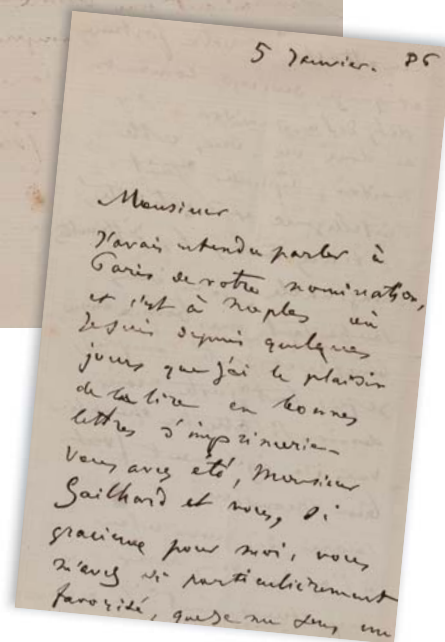 5 Janvier. 86
Monsieur
J'avais entendu parler à
Paris de votre nomination,
et c'est à Naples où
Je suis depuis quelques
jours que j'ai le plaisir
de la lire en bonnes
lettres d'imprimerie.
Vous avez été, Monsieur
Gailhard et vous, si
gracieux pour moi, vous
m'avez si particulièrement
favorisé, que je me sens un